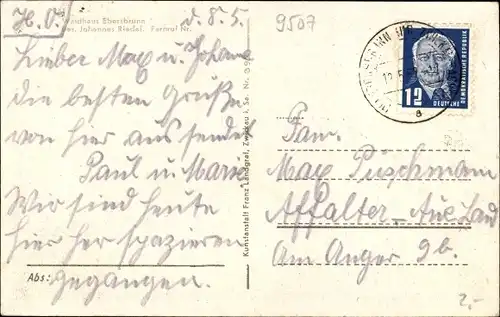 H. O.
d. 8. 5.
9507
Waldhaus Ebersbrunn
Bes. Johannes Riedel. Fernruf Nr.
Lieber Max u. Johanne
die besten Grüße
von hier aus sendet
Paul u. Marie
Wir sind heute
hier her spazieren
gegangen.
Abs:
Kunstanstalt Franz Landgraf, Zwickau i. Sa. Nr.
12
DEUTSCHE
DEMOKRATISCHE REPUBLIK
12.5.
a
Fam.
Max Püschmann
Affalter – Aue Land
Am Anger 9b.
2,-